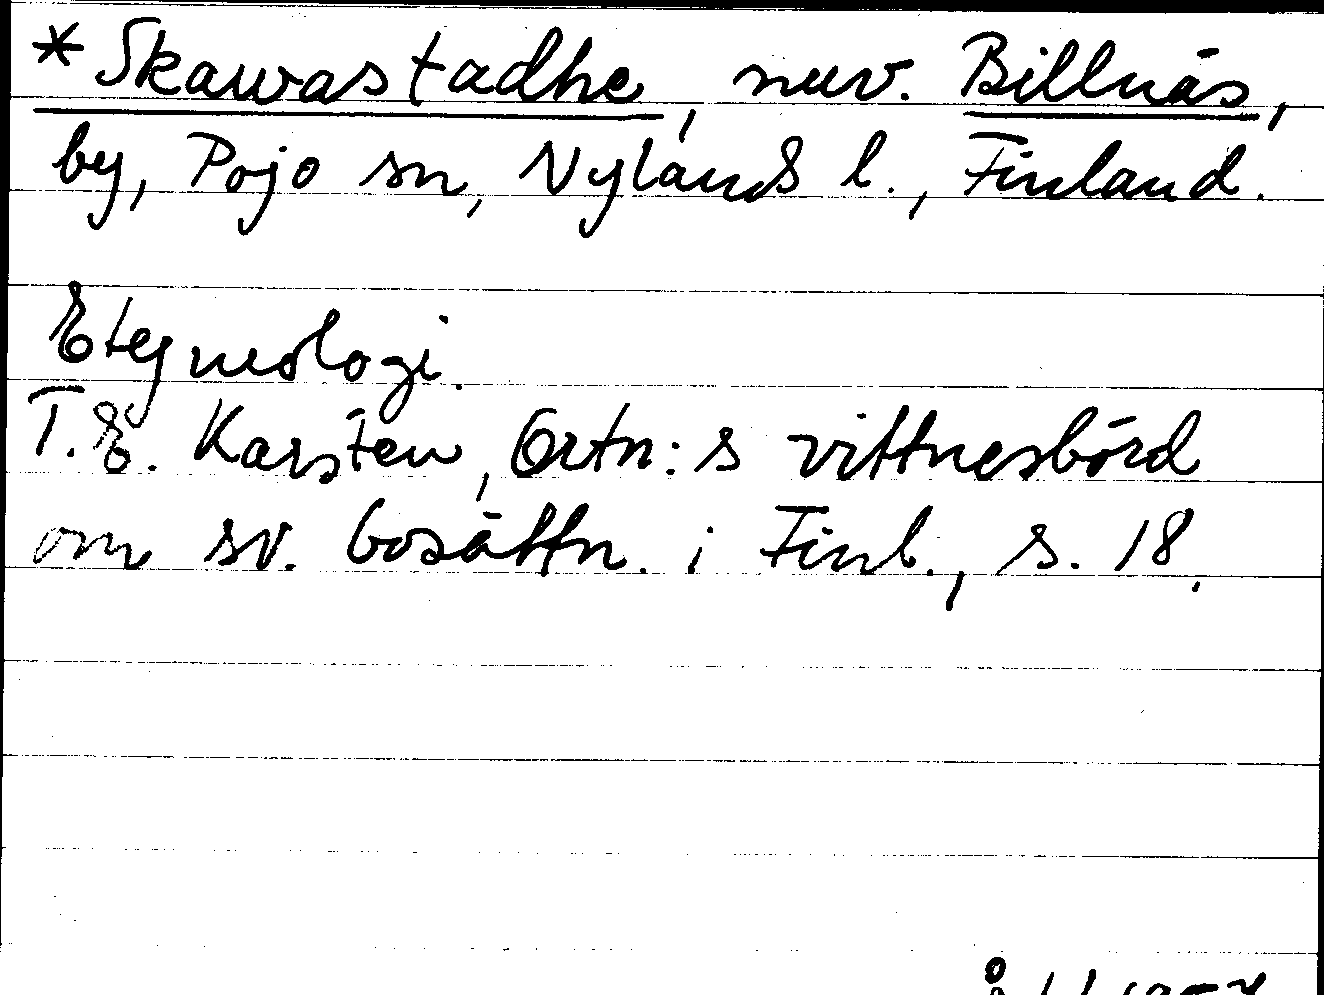 *Skawastadhe, nuv. Billnäs,
by, Pojo sn, Nylands l., Finland.
Etymologi.
T.E. Karsten, Ortn:s vittnesbörd
om sv. bosättn. i Finl., s. 18.